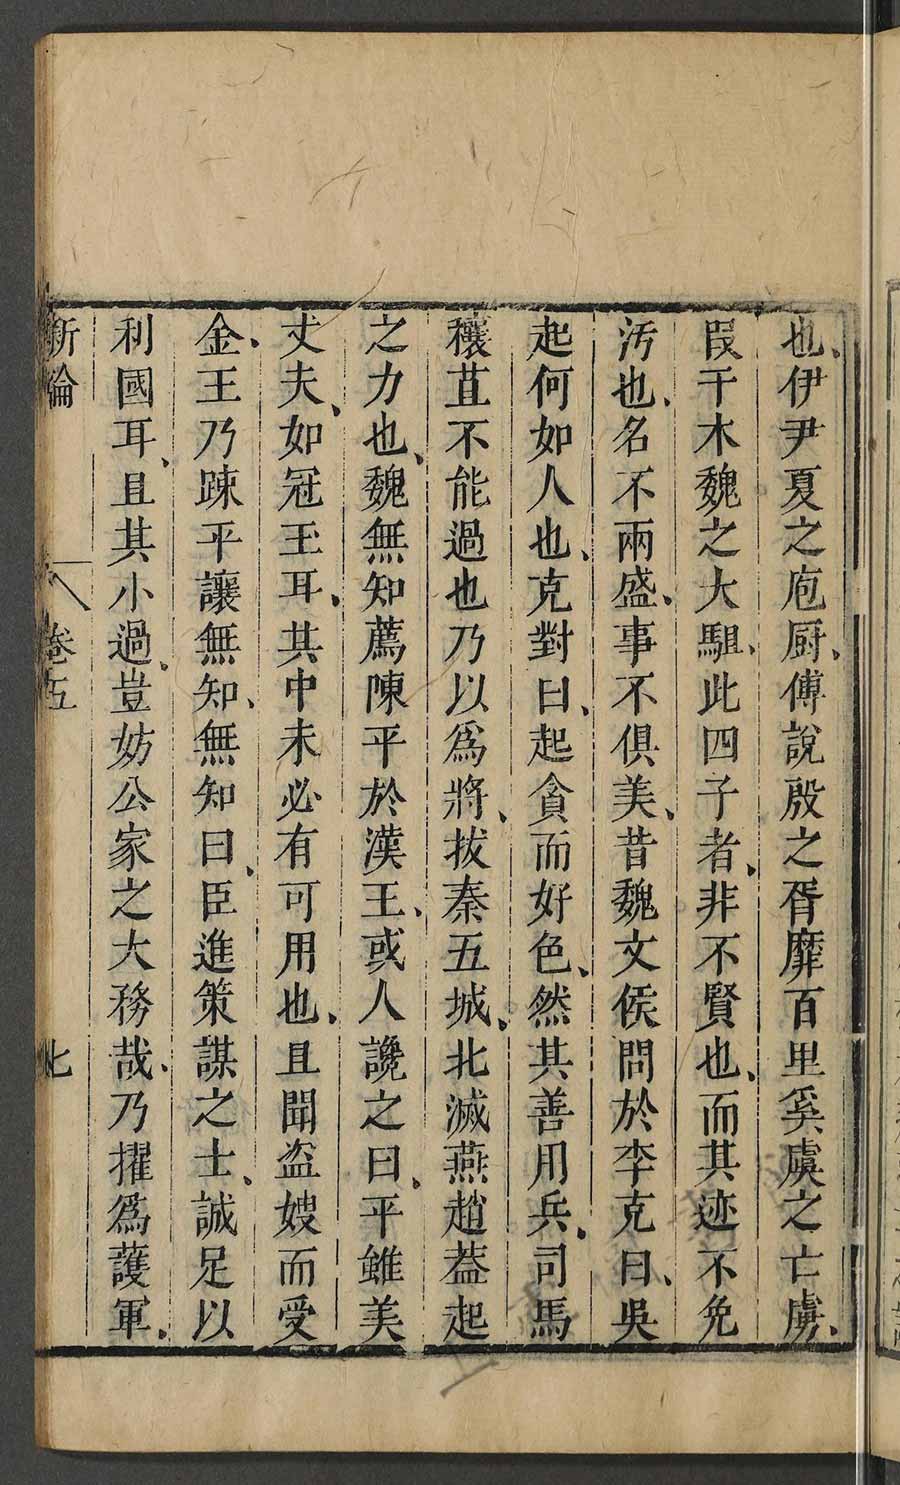 也、伊尹夏之庖厨、傅說殷之胥靡百里奚虞之亡虜、
叚干木魏之大駔、此四子者、非不賢也、而其迹不免
汚也、名不兩盛、事不俱美、昔魏文侯問於李克曰、吳
起何如人也、克對曰、起貪而好色、然其善用兵、司馬
穰苴不能過也乃以爲將、拔秦五城、北滅燕趙葢起
之力也、魏無知薦陳平於漢王、或人讒之曰、平雖美
丈夫、如冠玉耳、其中未必有可用也、且聞盜嫂而受
金、王乃踈平讓無知、無知曰、臣進策謀之士、誠足以
利國耳、且其小過、豈妨公家之大務哉、乃擢爲護軍、
新論 卷五 七